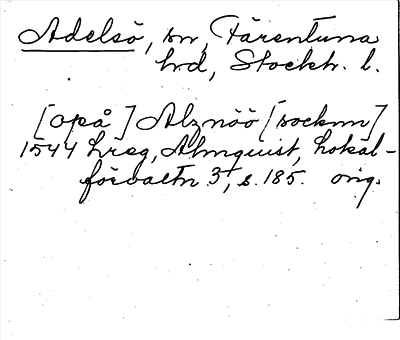 Adelsö, sn, Färentuna
hd, Stockh. l.
[opå] Alznöö [socknn]
1544 hreg, Almquist, Lokal-
förvaltn 3, s. 185. orig.